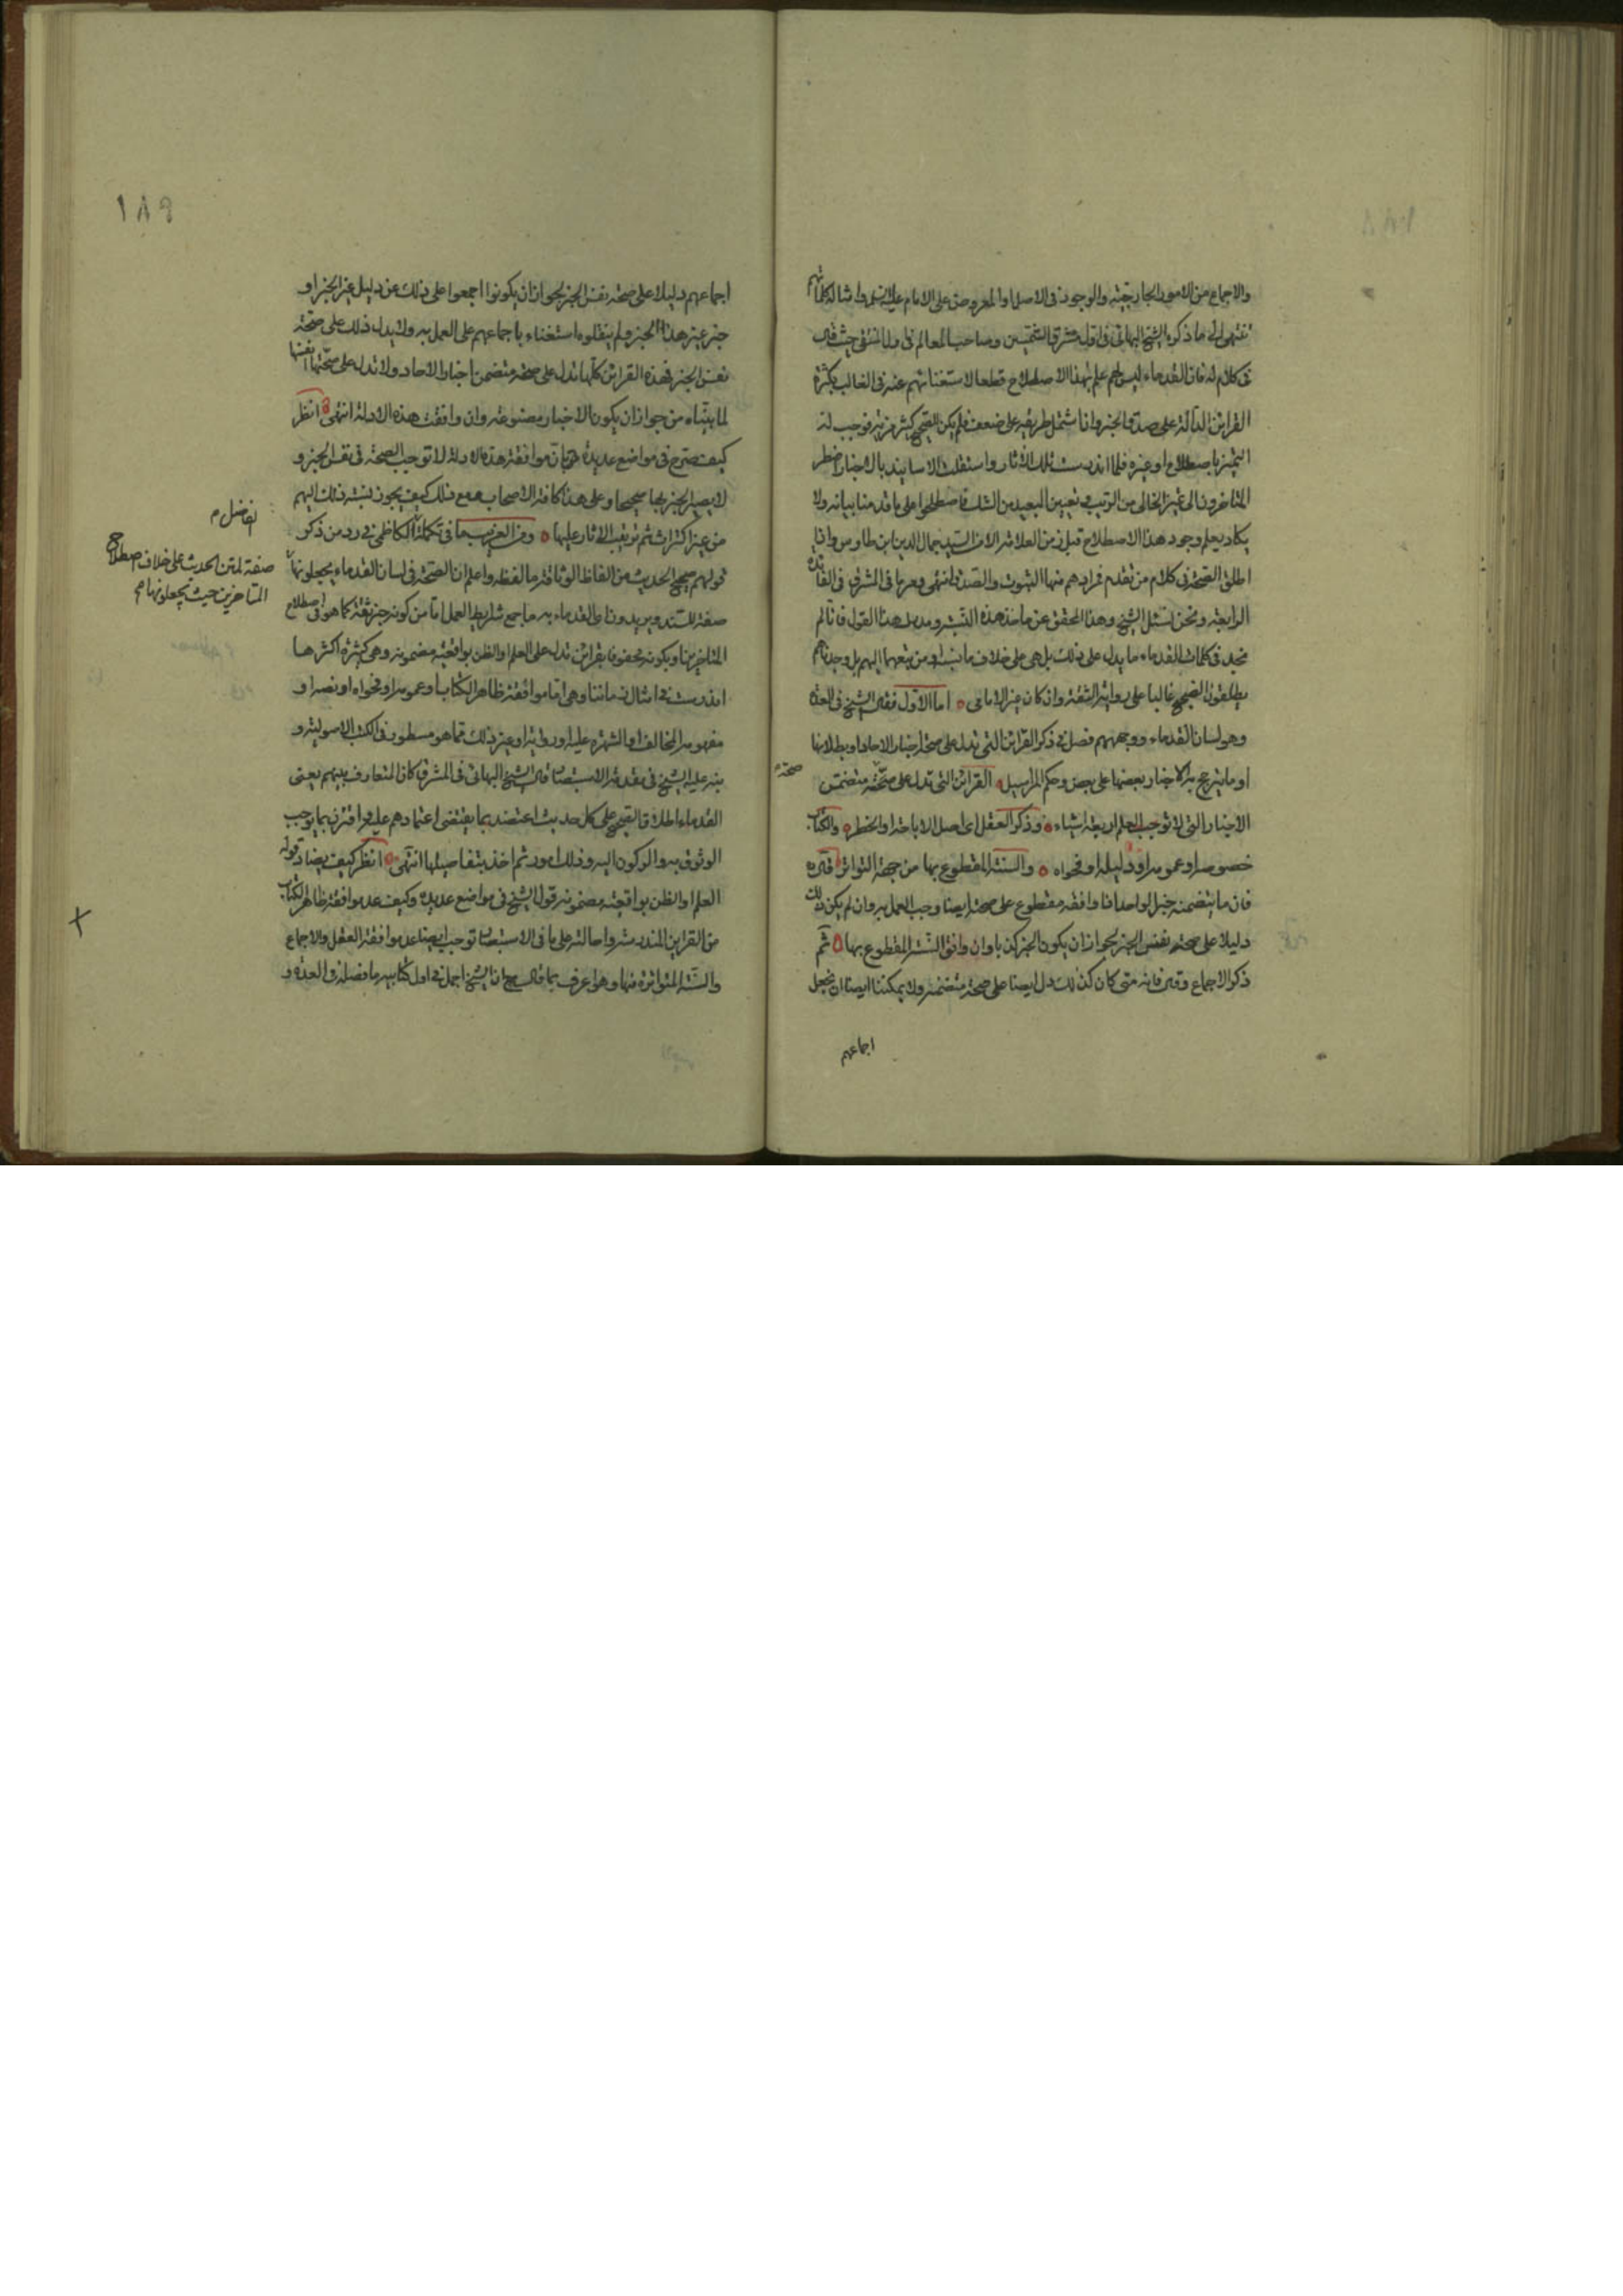 والاجماع من الامور الخارجية والوجود فى الاصل او المعروض على الامام عليه السلم وامثالها كلماتهم
تنتهى الى ما ذكره الشيخ البهائى فى اول مشرق الشمسين وصاحب المعالم فى المنتقى حيث قال
فى كلام له فان القدماء ليس لهم علم بهذا الاصطلاح قطعا لاستغنائهم عنه فى الغالب بكثرة
القرائن الدالة على صدق الخبر وان اشتمل طريقه على ضعف فلم يكن للصحيح كثير مزية توجب له
التميز باصطلاح او غيره فلما اندرست تلك الاثار واستقلت الاسانيد بالاخبار اضطر
المتاخرون الى تميز الخالى من الريب وتعيين البعيد من الشك فاصطلحوا على ما قدمنا بيانه ولا
يكاد يعلم وجود هذا الاصطلاح قبل زمن العلامة الا من السيد جمال الدين ابن طاوس واذا
اطلق الصحة فى كلام من تقدم فمرادهم منها الثبوت والصدق انتهى وصرح بها فى المشرق فى الفائدة
الرابعة ونحن نسئل الشيخ وهذا المحقق عن ماخذ هذه النسبة ومدرك هذا القول فانا لم
نجد فى كلمات القدماء ما يدل على ذلك بل هى على خلاف ما نسباه ومن تبعهما اليهم بل وجدناهم
يطلقون الصحيح غالبا على رواية الثقة وان كان غير الامامى اما الاول فقال الشيخ فى العدة
وهو لسان القدماء ووجههم فصل فى ذكر القرائن التى تدل على صحة اخبار الاحاد او بطلانها
او ما يترجح به الاخبار بعضها على بعض وحكم المراسيل القرائن التى تدل على صحة متضمن
صحة
الاخبار التى لا توجب العلم اربعة اشياء وذكر العقل اى اصل الاباحة او الحظر والكتاب
خصوصه او عمومه او دليله او فحواه والسنة المقطوع بها من جهة التواتر قال
فان ما يتضمنه خبر الواحد اذا وافقه مقطوع على صحته ايضا وجب العمل به وان لم يكن ذلك
دليلا على صحة نفس الخبر لجواز ان يكون الخبر كذبا وان وافق السنة المقطوع بها ثم
ذكر الاجماع وقال فانه متى كان كذلك دل ايضا على صحة متضمنه ولا يمكننا ايضا ان نجعل
اجماعهم
١٨٩
اجماعهم دليلا على صحة نفس الخبر لجواز ان يكونوا اجمعوا على ذلك عن دليل غير الخبر او
خبر غير هذا الخبر ولم ينقلوه استغناء باجماعهم على العمل به ولا يدل ذلك على صحة
نفس الخبر فهذه القرائن كلها تدل على صحة متضمن اخبار الاحاد ولا تدل على صحتها انفسها
لما بيناه من جواز ان يكون الاخبار مصنوعة وان وافقت هذه الادلة انتهى انظر
كيف صرح فى مواضع عديدة بان موافقة هذه الادلة لا توجب الصحة فى نفس الخبر و
لا يصير الخبر بها صحيحا وعلى هذا كافة الاصحاب ومع ذلك كيف يجوز نسبة ذلك اليهم
من غير اكتراث ثم ترتيب الاثار عليها ومن الغريب ما فى تكملة الكاظمى فى رد من ذكر
الفاضل م
قولهم صحيح الحديث من الفاظ الوثاقة ما لفظه واعلم ان الصحة فى لسان القدماء يجعلونها
صفة لمتن الحديث على خلاف اصطلاح
المتاخرين حيث يجعلونها صح
صفة للسند ويريدون اى القدماء به ما جمع شرايط العمل اما من كونه خبر ثقة كما هو فى اصطلاح
المتاخرين او بكونه محفوفا بقرائن تدل على العلم او الظن بواقعية مضمونه وهى كثيرة اكثرها
اندرست فى امثال زماننا وهى اما موافقة ظاهر الكتاب او عمومه او فحواه او نصه او
مفهومه المخالف او الشهرة عليه او رواية او غير ذلك مما هو مسطور فى الكتب الاصولية و
نبه عليه الشيخ فى مقدمة الاستبصار قال الشيخ البهائى فى المشرق كان المتعارف بينهم يعنى
القدماء اطلاق الصحيح على كل حديث اعتضد بما يقتضى اعتمادهم عليه او اقترن بما يوجب
الوثوق به والركون اليه وذلك امور ثم اخذ بتفاصيلها انتهى انظر كيف يضاد قوله
العلم او الظن بواقعية مضمونه قول الشيخ فى مواضع عديدة وكيف عد موافقة ظاهر الكتاب
من القراين المندرسة واحالته على ما فى الاستبصار توجب ايضا عد موافقة العقل والاجماع
والسنة المتواترة منها وهو اعرف بما قال مع ان الشيخ اجمل فى اول كتابيه ما فصله فى العدة و